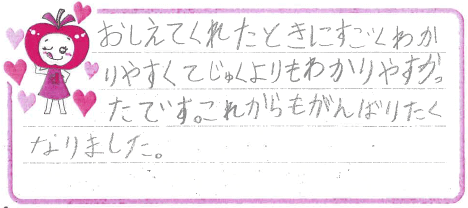 おしえてくれたときにすごくわか
りやすくてじゅくよりもわかりやすかっ
たです。これからもがんばりたく
なりました。